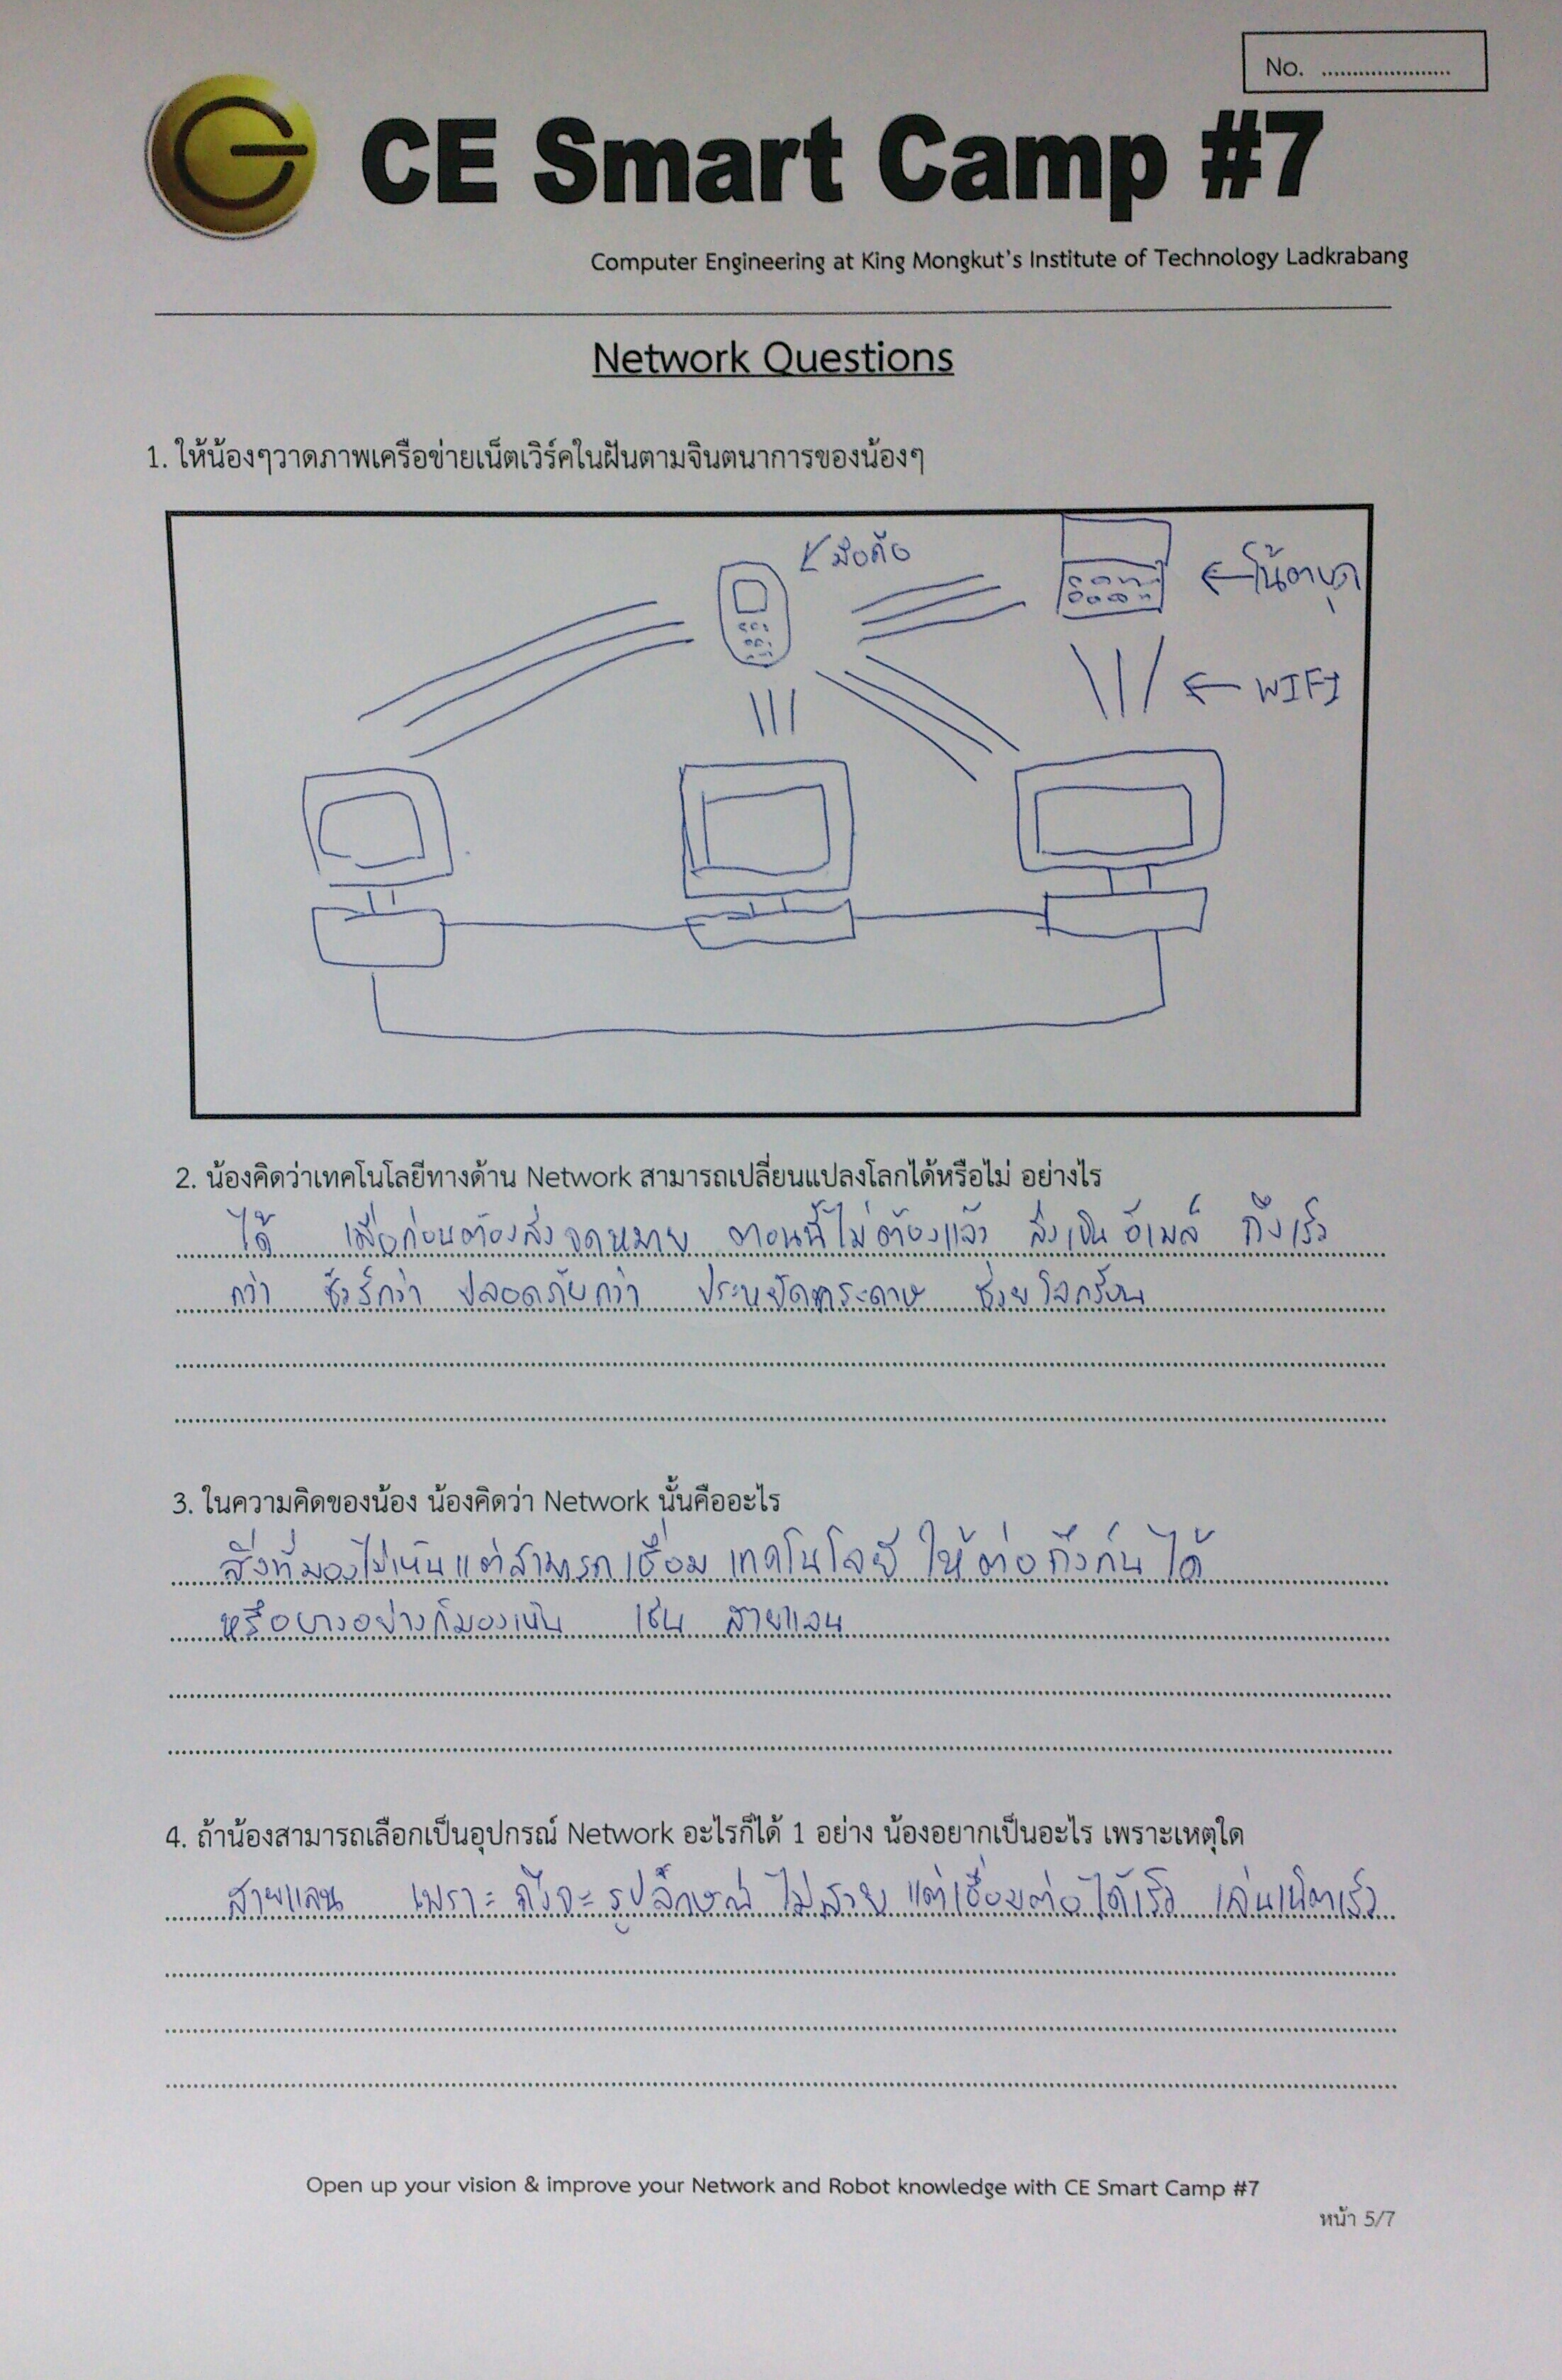 No. ......................
CE Smart Camp #7
Computer Engineering at King Mongkut's Institute of Technology Ladkrabang
Network Questions
1. ให้น้องๆวาดภาพเครือข่ายเน็ตเวิร์คในฝันตามจินตนาการของน้องๆ
มือถือ
โน้ตบุด
WIFI
2. น้องคิดว่าเทคโนโลยีทางด้าน Network สามารถเปลี่ยนแปลงโลกได้หรือไม่ อย่างไร
ได้ เมื่อก่อนต้องส่งจดหมาย ตอนนี้ไม่ต้องแล้ว ส่งเป็นอีเมล์ ถึงเร็ว
กว่า ชัวร์กว่า ปลอดภัยกว่า ประหยัดกระดาษ ช่วยโลกร้อน
3. ในความคิดของน้อง น้องคิดว่า Network นั้นคืออะไร
สิ่งที่มองไม่เห็นแต่สามารถเชื่อม เทคโนโลยี ให้ต่อถึงกันได้
หรือบางอย่างก็มองเห็น เช่น สายแลน
4. ถ้าน้องสามารถเลือกเป็นอุปกรณ์ Network อะไรก็ได้ 1 อย่าง น้องอยากเป็นอะไร เพราะเหตุใด
สายแลน เพราะ ถึงจะรูปลักษณ์ ไม่สวย แต่เชื่อมต่อได้เร็ว เล่นเน็ตเร็ว
Open up your vision & improve your Network and Robot knowledge with CE Smart Camp #7
หน้า 5/7